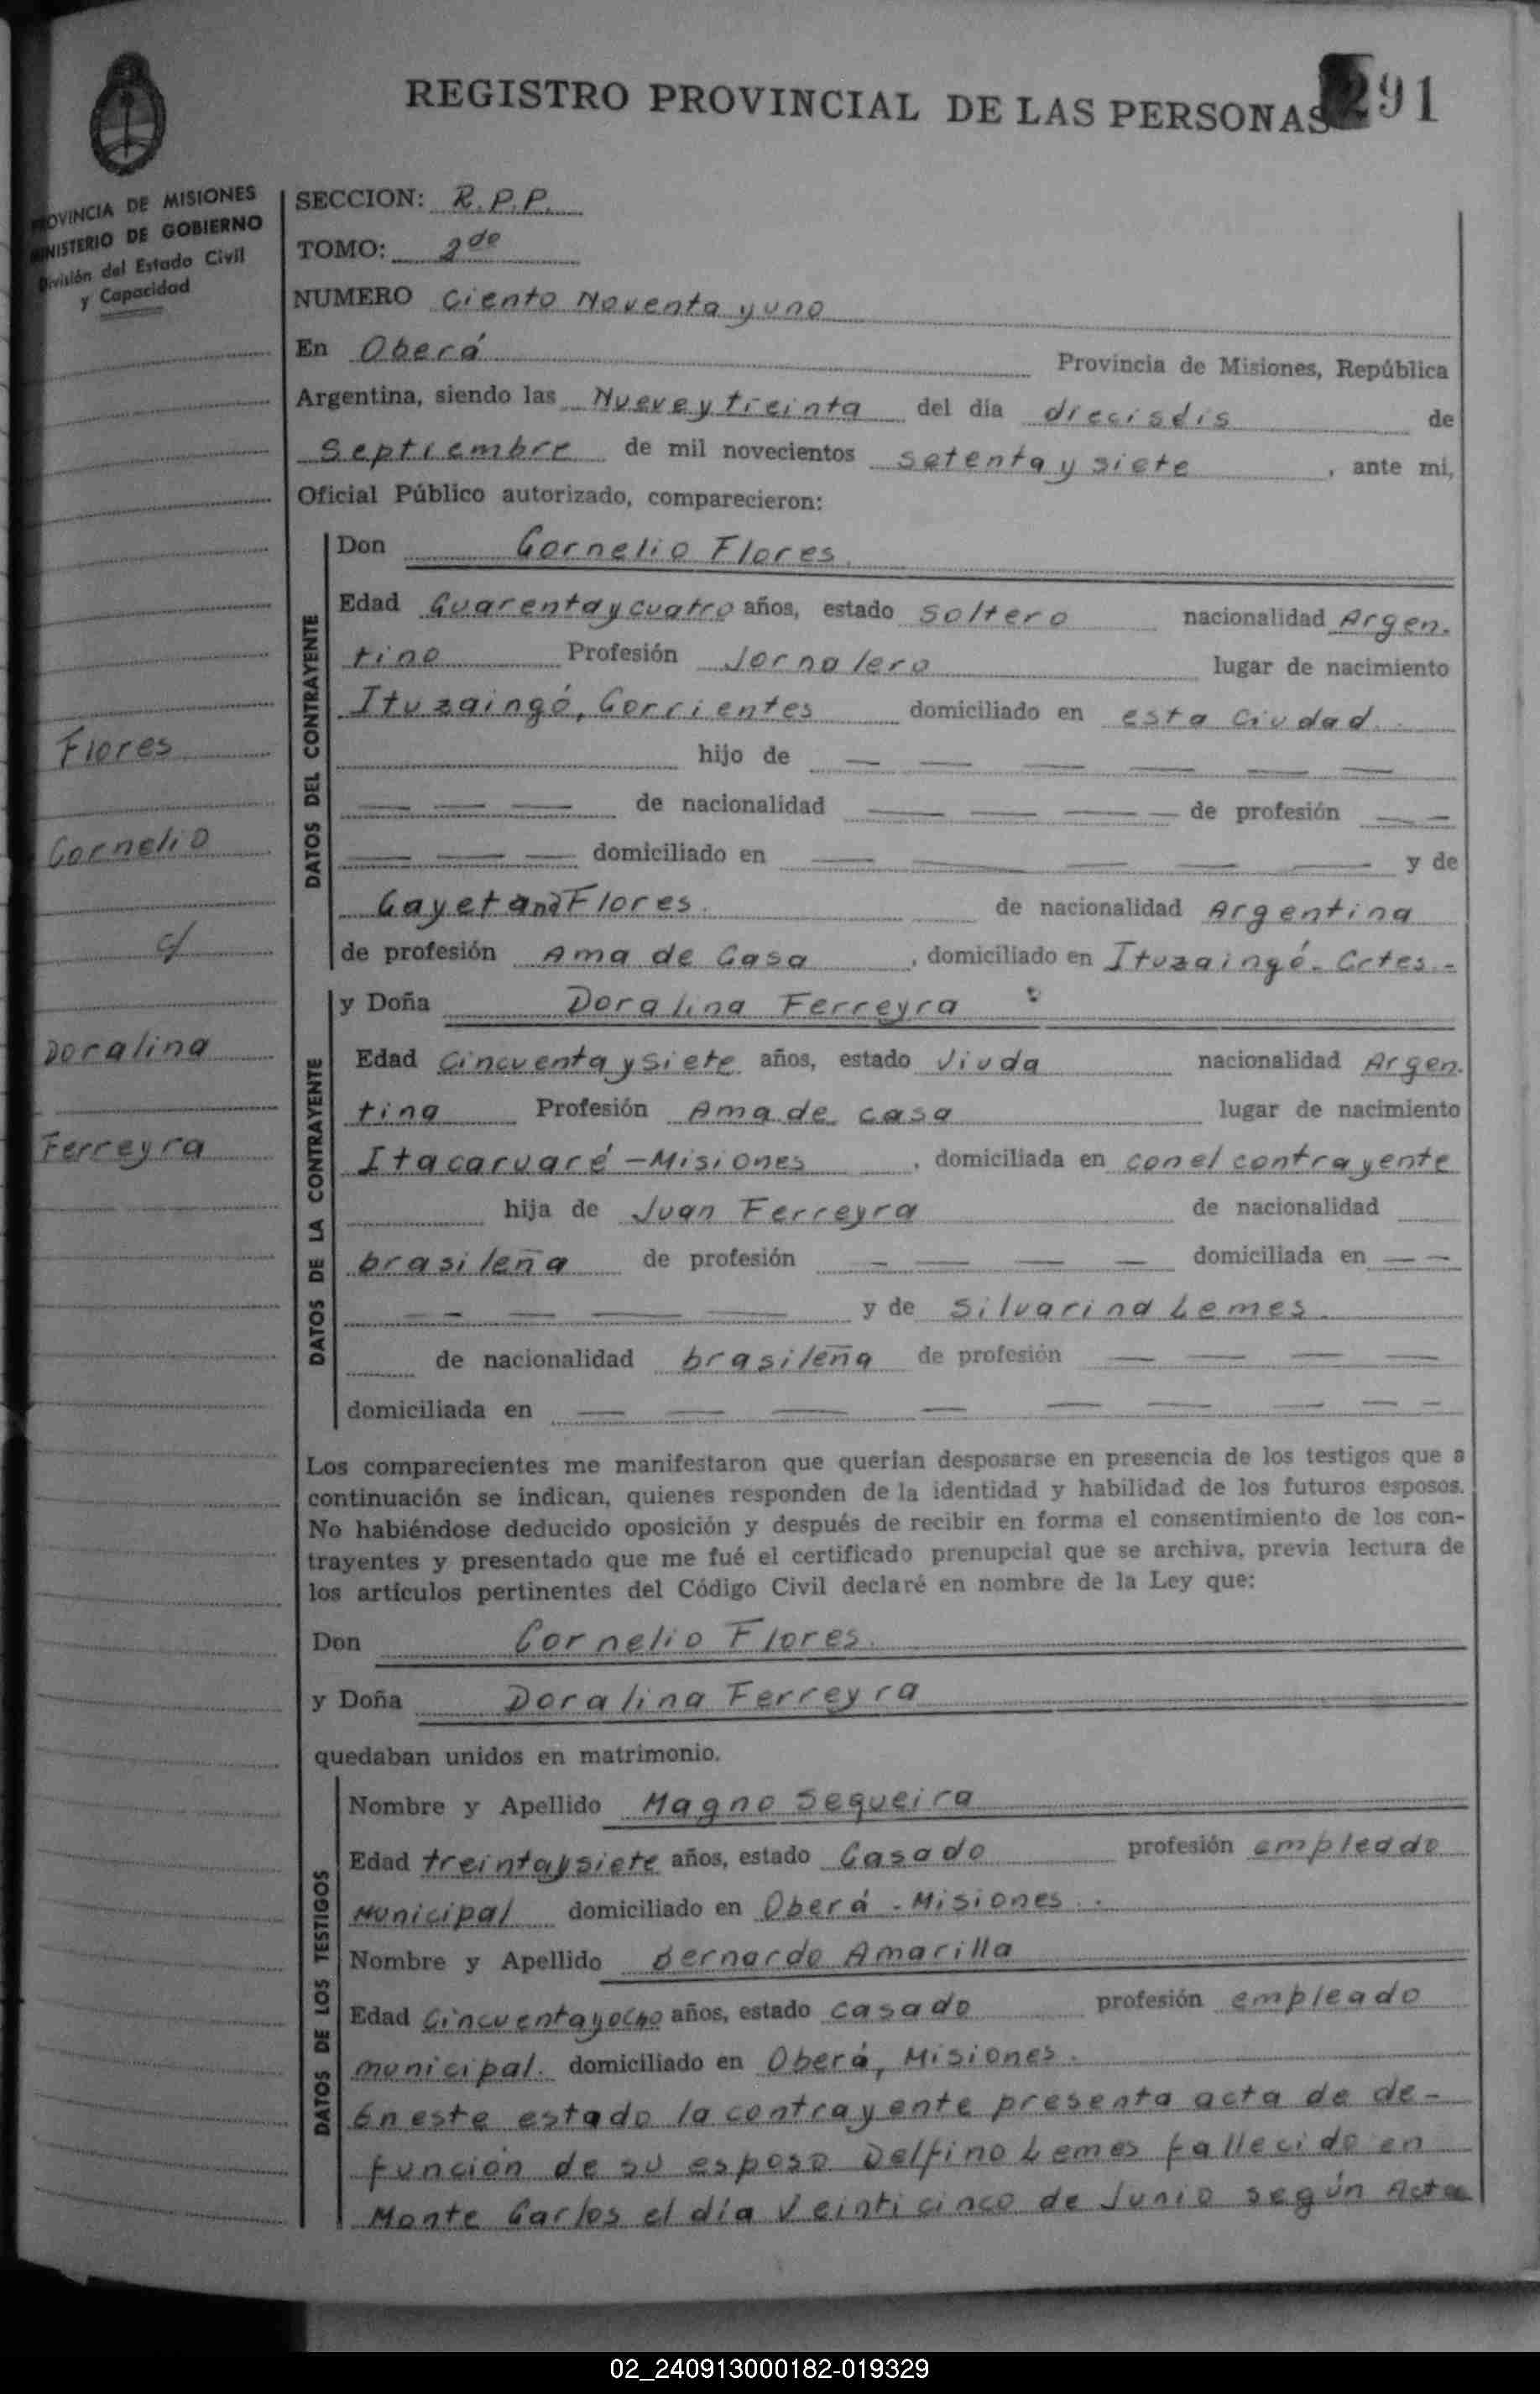 REGISTRO PROVINCIAL DE LAS PERSONAS 291
PROVINCIA DE MISIONES
MINISTERIO DE GOBIERNO
División del Estado Civil
y Capacidad
SECCION: R.P.P.
TOMO: 2do
NUMERO Ciento Noventa y uno
En Oberá Provincia de Misiones, República
Argentina, siendo las Nueve y treinta del día dieciséis de
Septiembre de mil novecientos setenta y siete, ante mi,
Oficial Público autorizado, comparecieron:
DATOS DEL CONTRAYENTE
Don Cornelio Flores.
Edad Cuarenta y cuatro años, estado soltero nacionalidad Argen-
tino Profesión Jornalero lugar de nacimiento
Ituzaingó, Corrientes domiciliado en esta Ciudad.
hijo de — — — — — —
— — — de nacionalidad — — — — de profesión — —
— — — domiciliado en — — — — — y de
Cayetana Flores. de nacionalidad Argentina
de profesión Ama de Casa, domiciliado en Ituzaingó. Crtes.-
Flores
Cornelio
c/
Doralina
Ferreyra
DATOS DE LA CONTRAYENTE
y Doña Doralina Ferreyra
Edad Cincuenta y siete años, estado Viuda nacionalidad Argen.
tina Profesión Ama de casa lugar de nacimiento
Itacaruaré - Misiones, domiciliada en con el contrayente
hija de Juan Ferreyra de nacionalidad
brasileña de profesión — — — — domiciliada en — —
— — — — y de Silvarina Lemes.
de nacionalidad brasileña de profesión — — — —
domiciliada en — — — — — — — — —
Los comparecientes me manifestaron que querían desposarse en presencia de los testigos que a
continuación se indican, quienes responden de la identidad y habilidad de los futuros esposos.
No habiéndose deducido oposición y después de recibir en forma el consentimiento de los con-
trayentes y presentado que me fué el certificado prenupcial que se archiva, previa lectura de
los artículos pertinentes del Código Civil declaré en nombre de la Ley que:
Don Cornelio Flores.
y Doña Doralina Ferreyra
quedaban unidos en matrimonio.
DATOS DE LOS TESTIGOS
Nombre y Apellido Magno Sequeira
Edad treinta y siete años, estado Casado profesión empleado
Municipal domiciliado en Oberá - Misiones.
Nombre y Apellido Bernardo Amarilla
Edad Cincuenta y ocho años, estado casado profesión empleado
municipal. domiciliado en Oberá, Misiones.
En este estado la contrayente presenta acta de de-
función de su esposo Delfino Lemes fallecido en
Monte Carlos el día Veinticinco de Junio según Acta
02_240913000182-019329